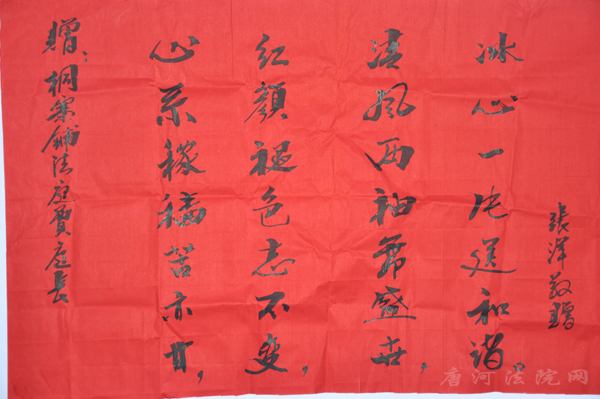 赠：桐寨铺法庭贾庭長
心系稼穑苦亦甘，
红顔褪色志不变，
清风两袖舞盛世，
冰心一片送和谐。
張 敬赠
唐河法院网